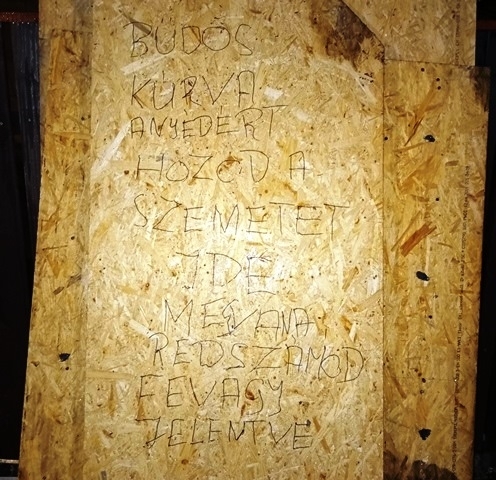 BÜDÖS
KURVA
ANYEDERT
HOZOD A
SZEMETET
IDE
MEGVANA
RENSZAMOD
FEVAGY
JELENTVE